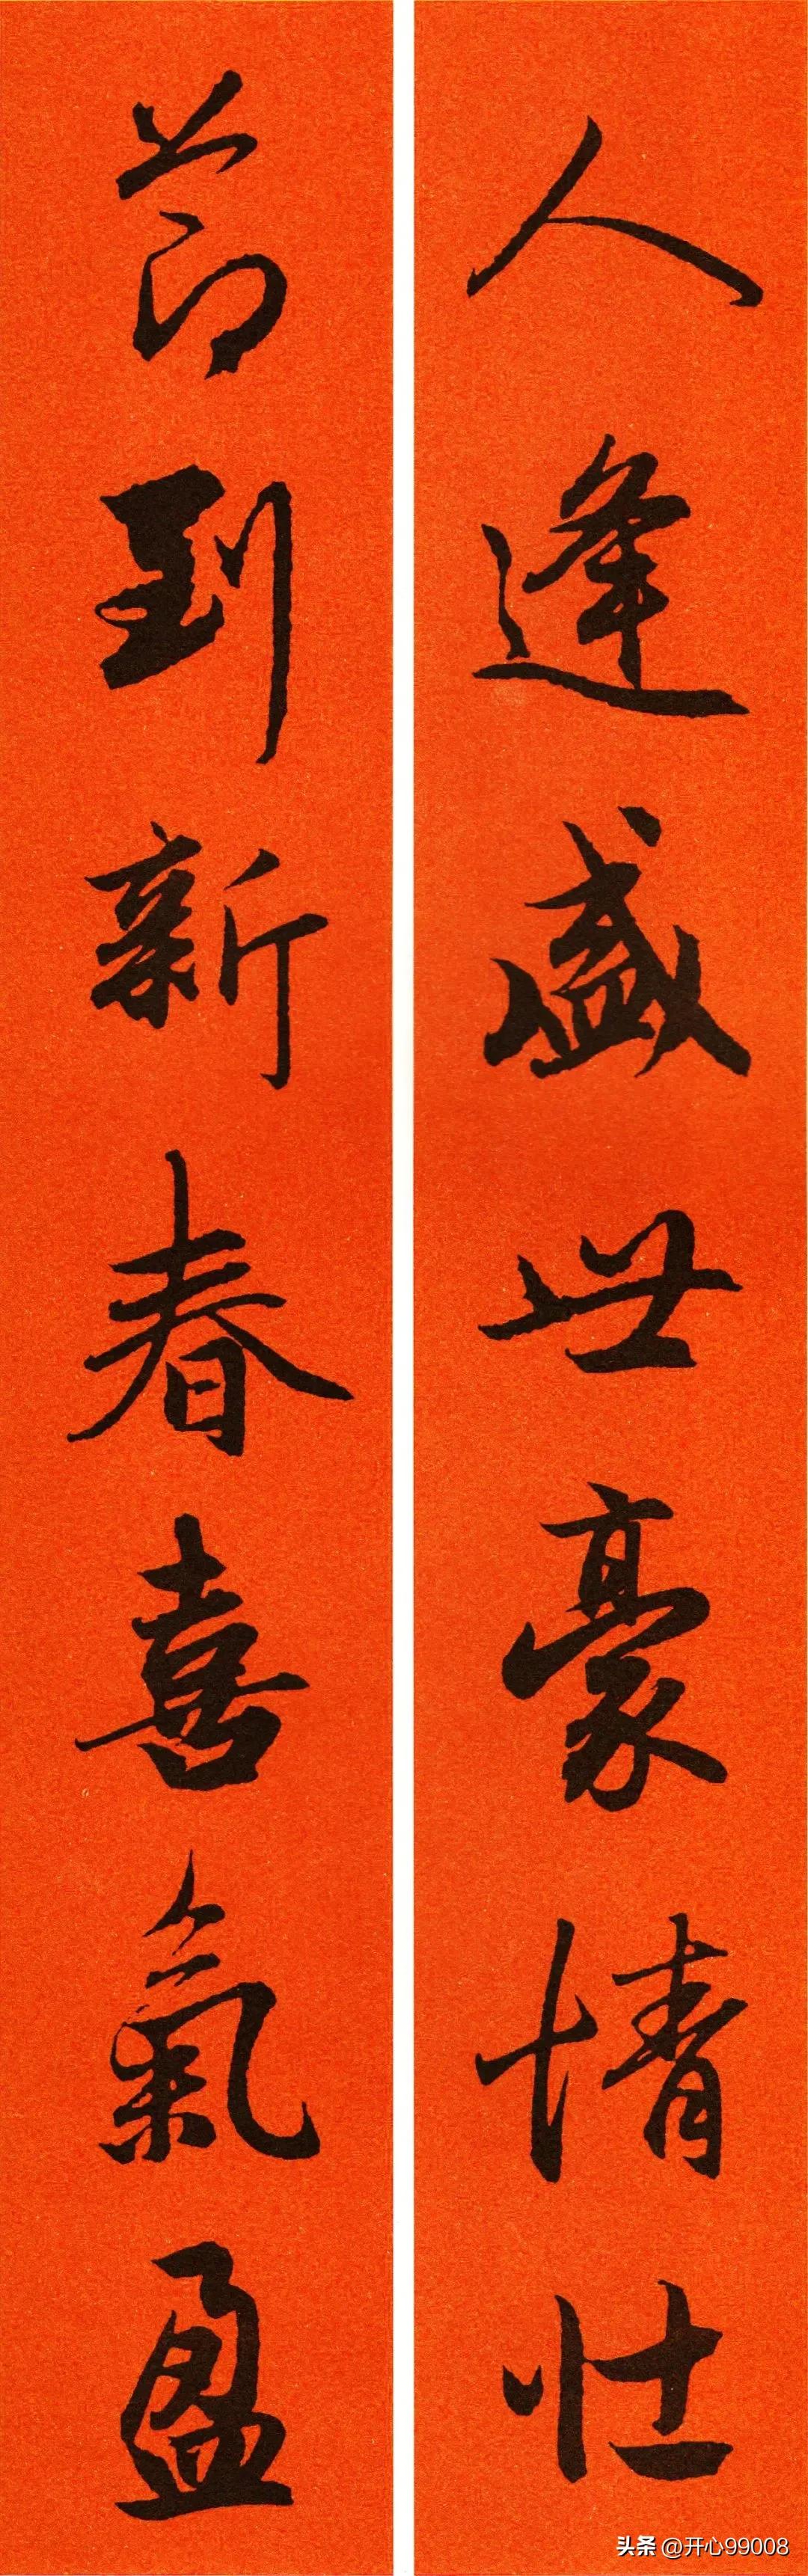 人逢盛世豪情壮
節到新春喜氣盈
头条 @开心99008